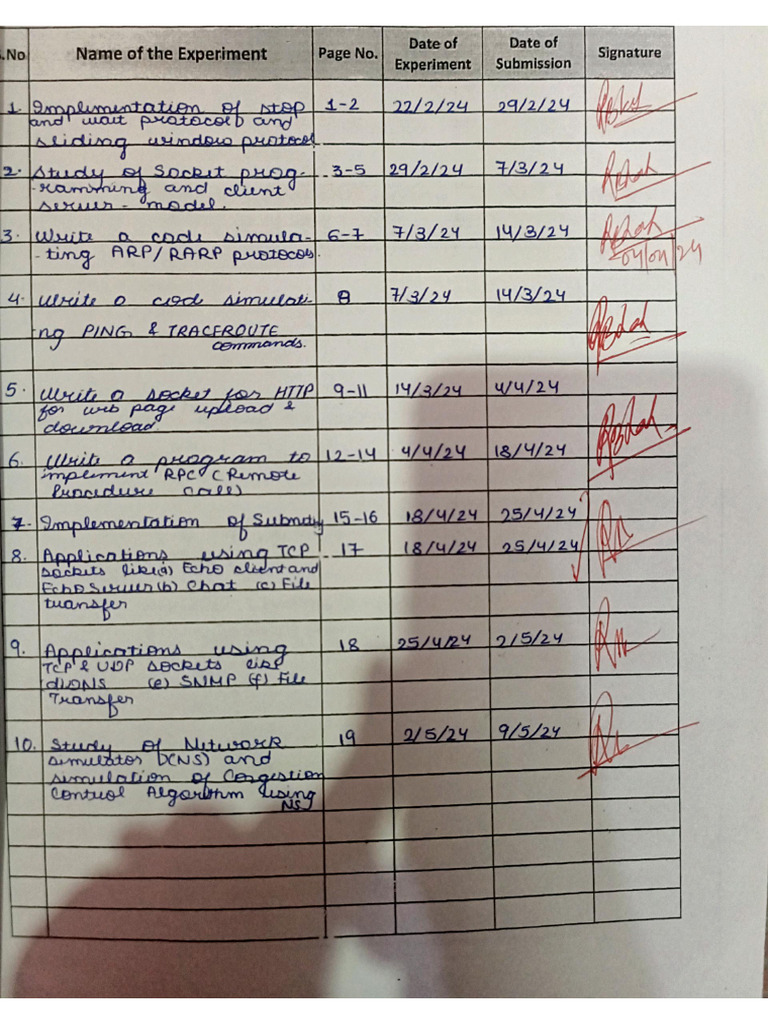 S.No Name of the Experiment Page No. Date of Experiment Date of Submission Signature
1. Implimentation of stop 1-2 22/2/24 29/2/24
and wait protocol and
sliding window protocol
2. Study of Socket prog- 3-5 29/2/24 7/3/24
-ramming and client
server - model.
3. Write a code simula- 6-7 7/3/24 14/3/24
-ting ARP/RARP protocols. 04/04/24
4. Write a cod simulati- 8 7/3/24 14/3/24
ng PING & TRACEROUTE
commands.
5. Write a socket for HTTP 9-11 14/3/24 4/4/24
for web page upload &
download.
6. Write a program to 12-14 4/4/24 18/4/24
impliment RPC (Remote
Procedure Call)
7. Implementation of 15-16 18/4/24 25/4/24
8. Applications using TCP 17 18/4/24 25/4/24
sockets like(a) Echo client and
Echo Server (b) Chat (c) File
transfer
9. Applications using 18 25/4/24 2/5/24
TCP & UDP sockets like
(d) DNS (e) SNMP (f) File
Transfer
10. Study of Network 19 2/5/24 9/5/24
simulator (NS) and
simulation of Congestion
Control Algorithm using
NS